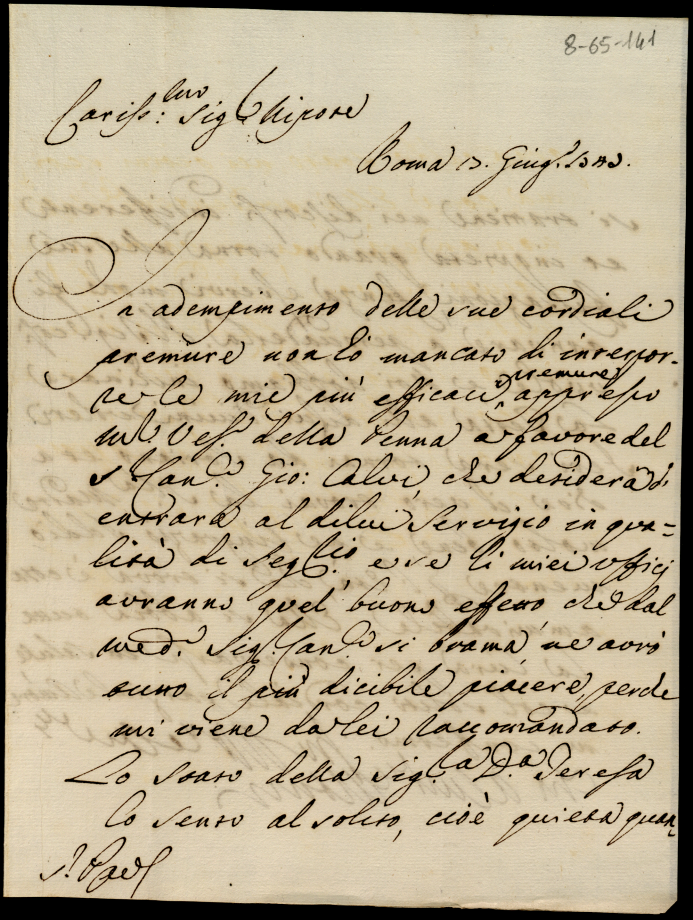 8-65-141
Cariss:mo Sigr Nipote
Roma 13. Giug.
In adempimento delle sue cordiali
premure non hò mancato di interpor-
re le mie più efficaci premure appresso
Ml. Vesc. della Penna a favore del
Sr. Can.co Gio: Calvi, che desidera d'
entrare al dilui servigio in qua=
lità di Seg.rio e se li miei ufficj
avranno quel' buono effetto che dal
med.o Sig. Can.co si brama, ne avrò
tutto il più dicibile piacere, perche
mi viene da lei raccomandato.
Lo stato della Sig.ra D.a Teresa
lo sento al solito, cioè quieta quan-